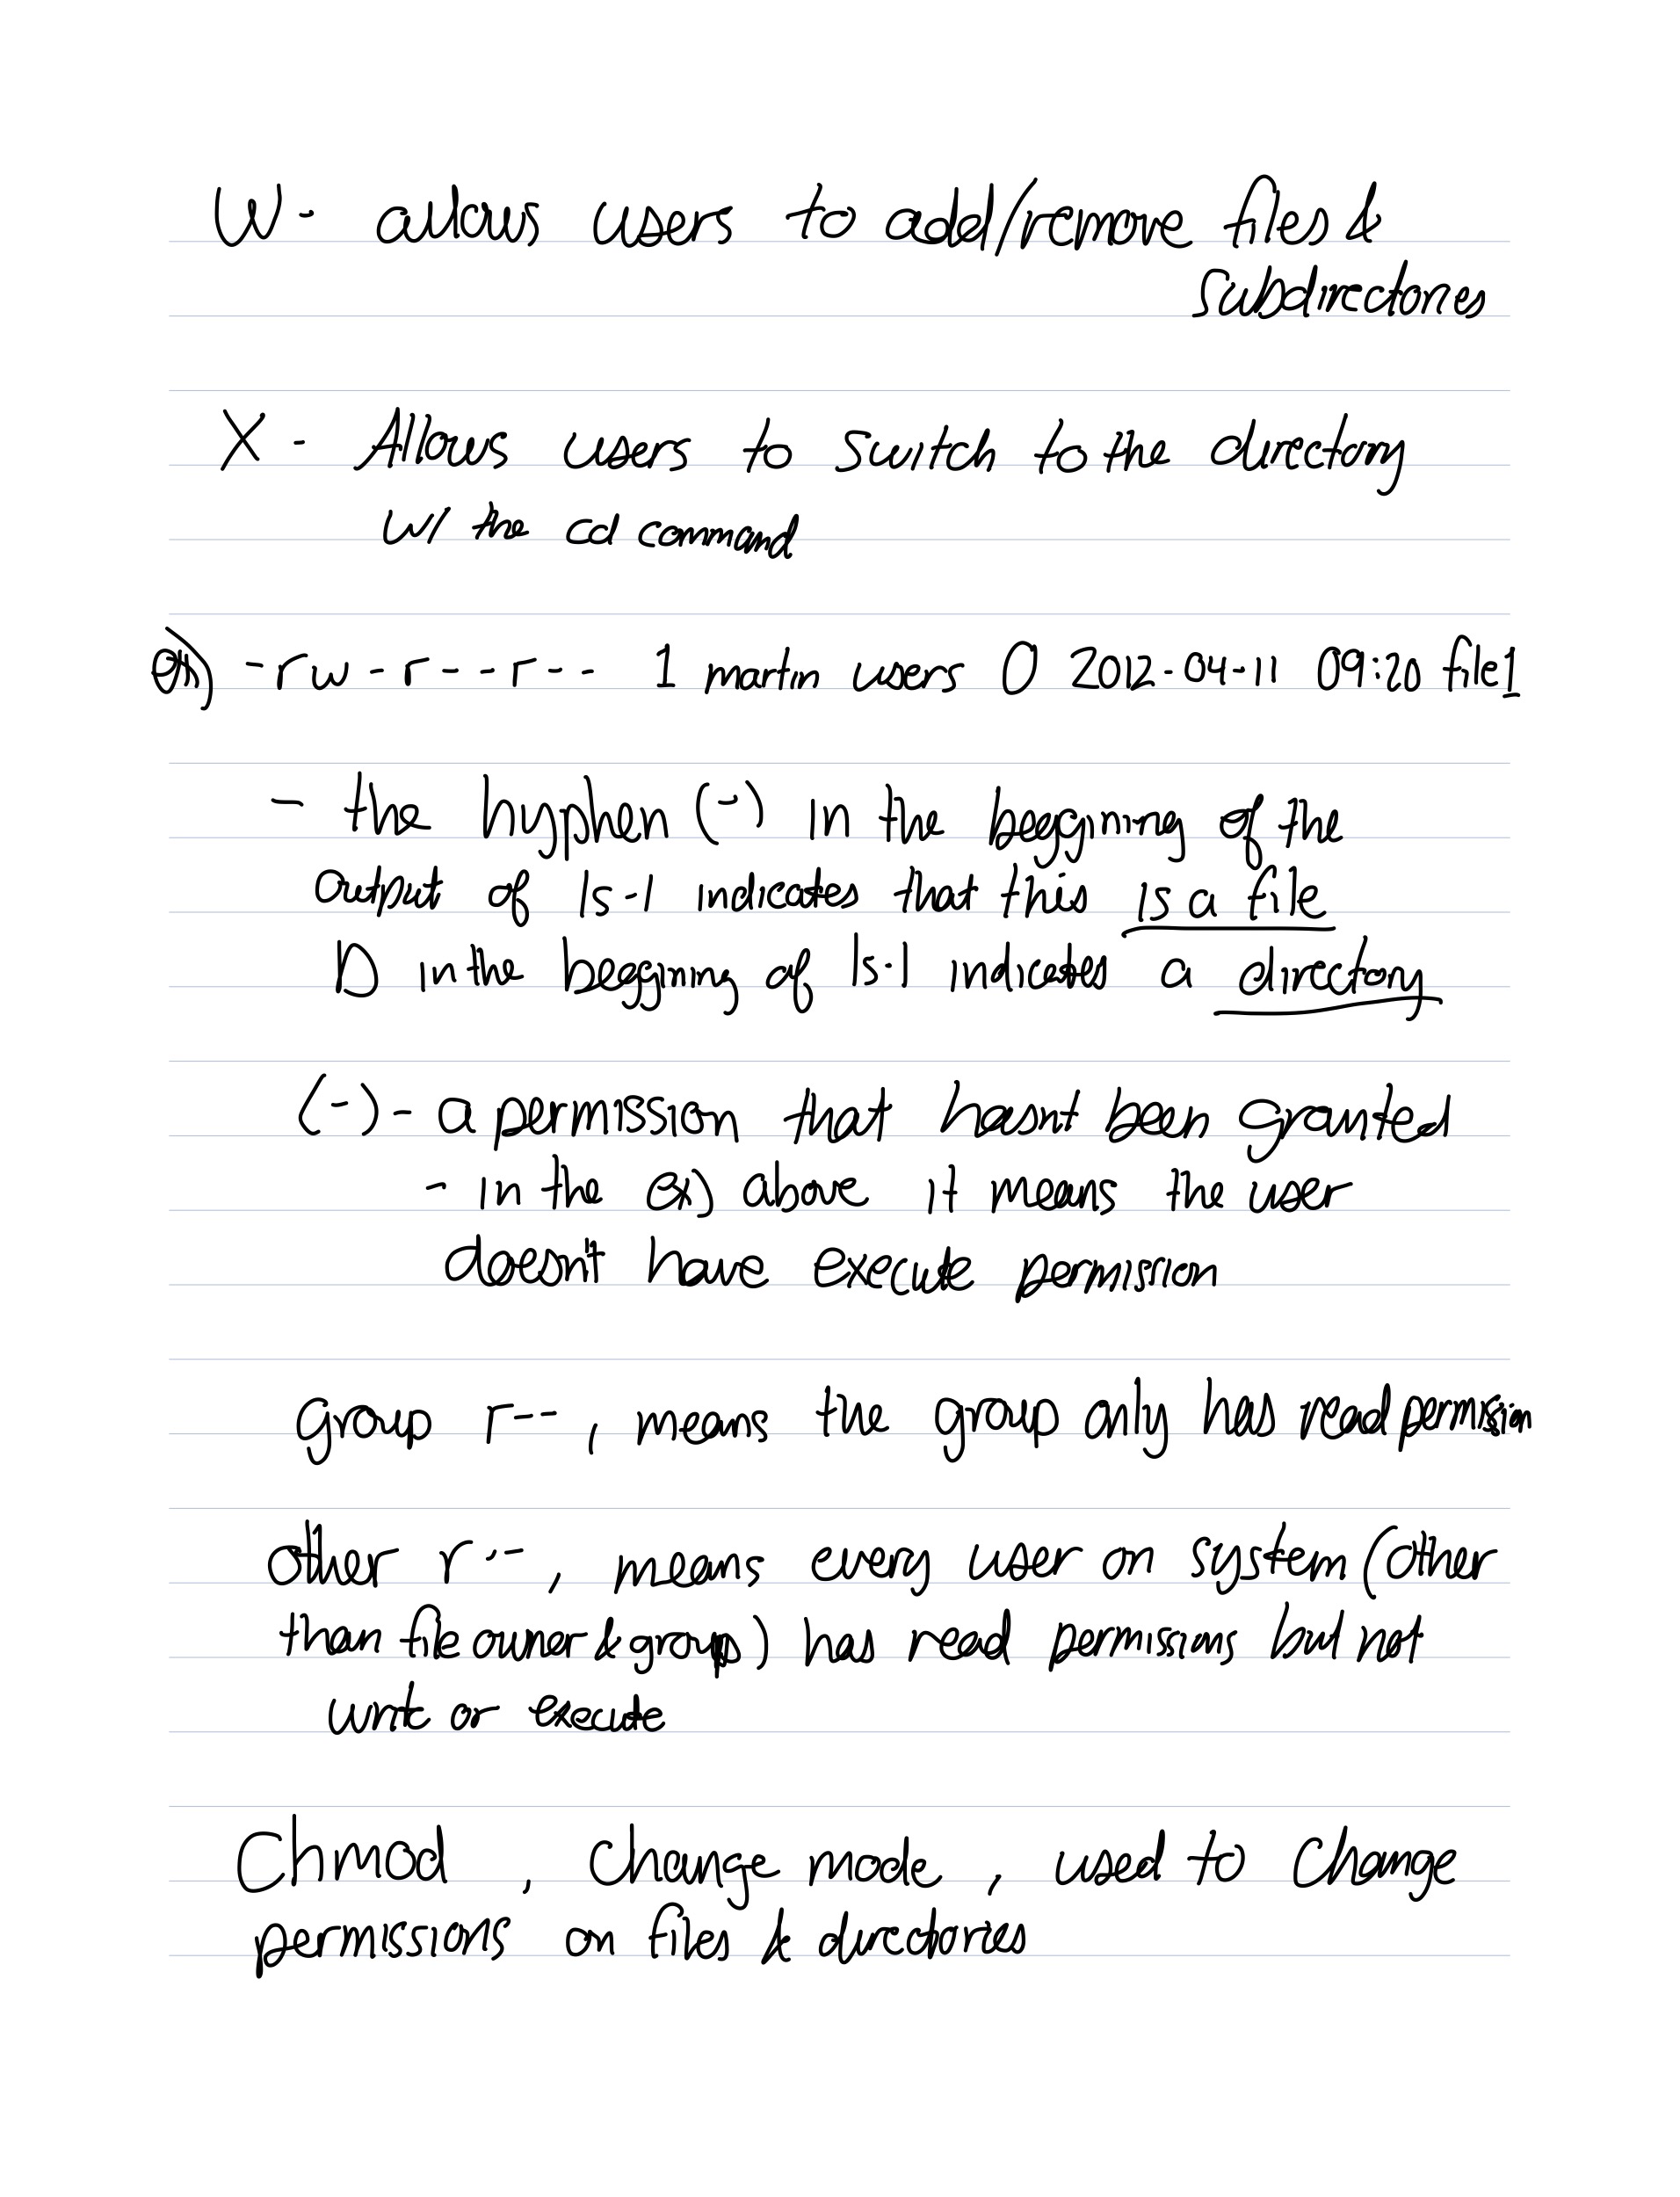 W - allows users to add/remove files &
subdirectories
X - Allows users to switch to the directory
w/ the cd command
-rw-r-- --r-- 1 martin users 0 2012-04-11 09:20 file1
- the hyphen (-) in the beggining of the
output of ls -l indicates that this is a file
D in the beggining of ls -l indicates a directory
(-) - a permission that hasn't been granted
- in the ex) above it means the user
doesn't have execute permission
group r--, means the group only has read permission
other r--, means every user on system (other
than file owner & group) has read permissions but not
write or execute
Chmod, change mode, used to change
permissions on files & directories